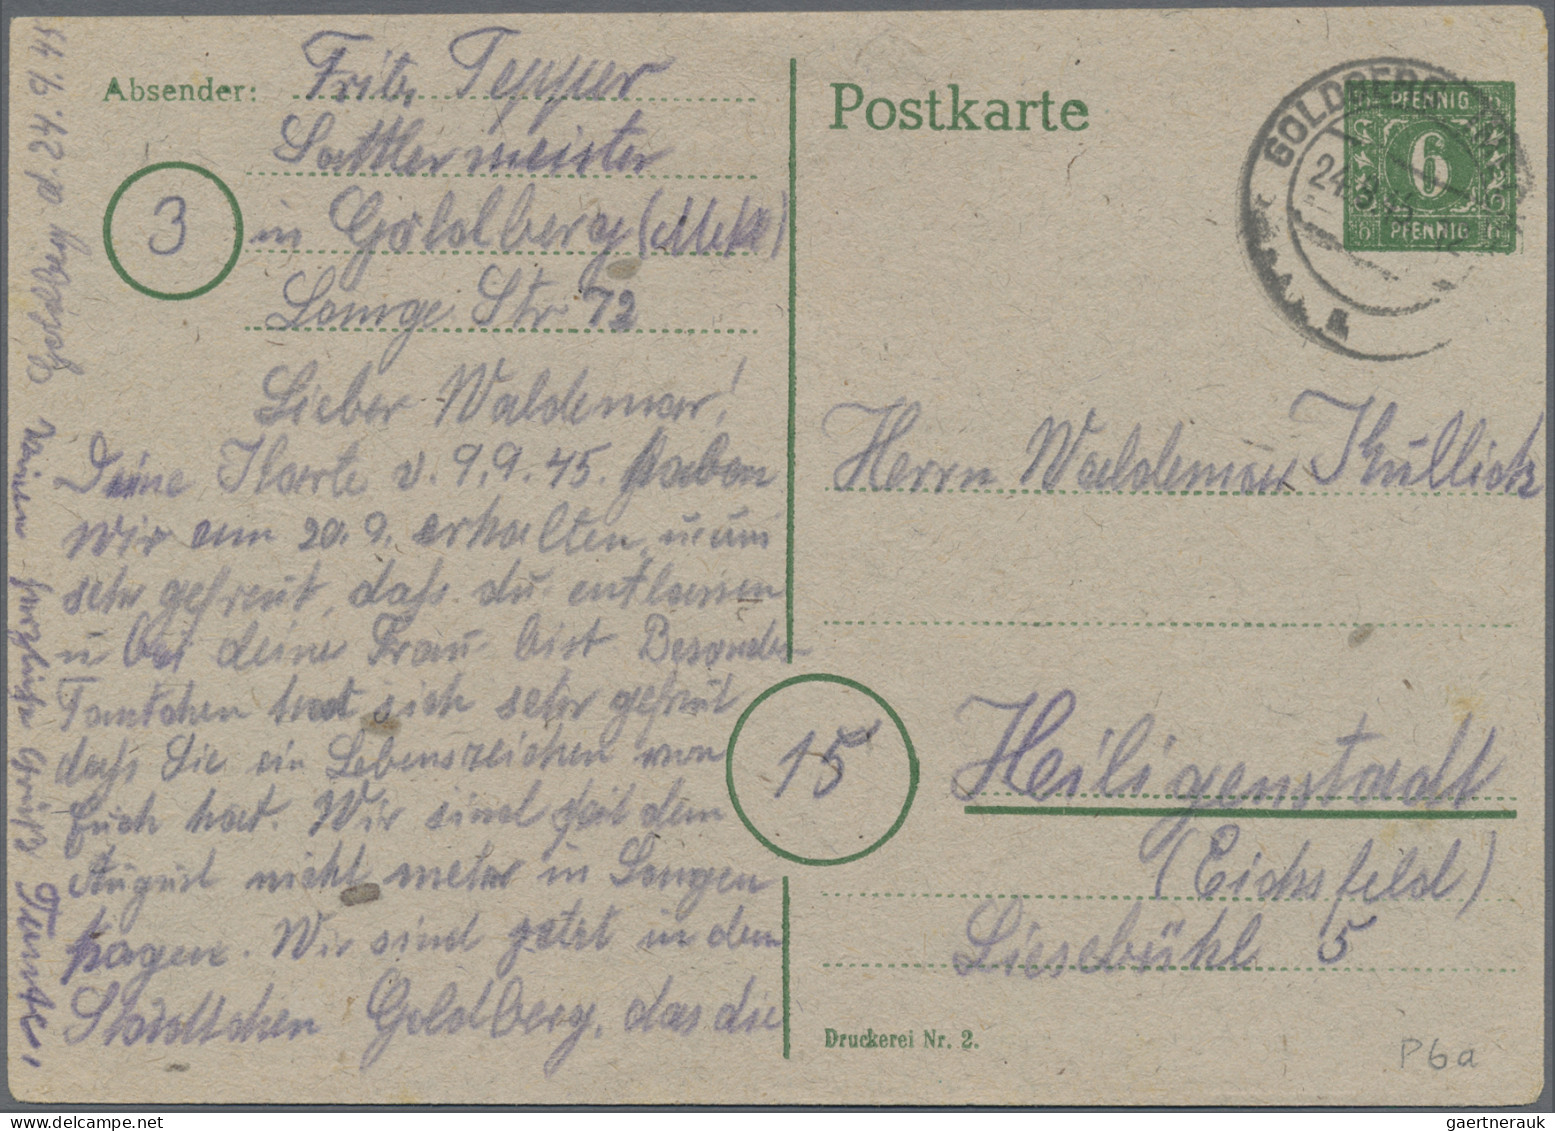 Absender: Fritz Tepper
Sattlermeister
3
in Goldberg (Meckl)
Lange Str 72
Lieber Waldemar!
Deine Karte v. 9.9.45. haben
wir am 20.9. erhalten, u uns
sehr gefreut, daß du entlassen
u bei deine Frau bist Besonders
Tantchen hat sich sehr gefreut
daß Sie ein Lebenszeichen von
Euch hat. Wir sind seit dem
August nicht mehr in Langen
hagen. Wir sind jetzt in dem
Städtchen Goldberg, das die
Goldberg d. 24.9.45
herzliche Grüße Tante,
Postkarte
GOLDBERG
24.9.45
PFENNIG
6
PFENNIG
Herrn Waldemar Kullick
15
Heiligenstadt
(Eichsfeld)
Liesebühl 5
Druckerei Nr. 2.
P6a
gaertnerauk